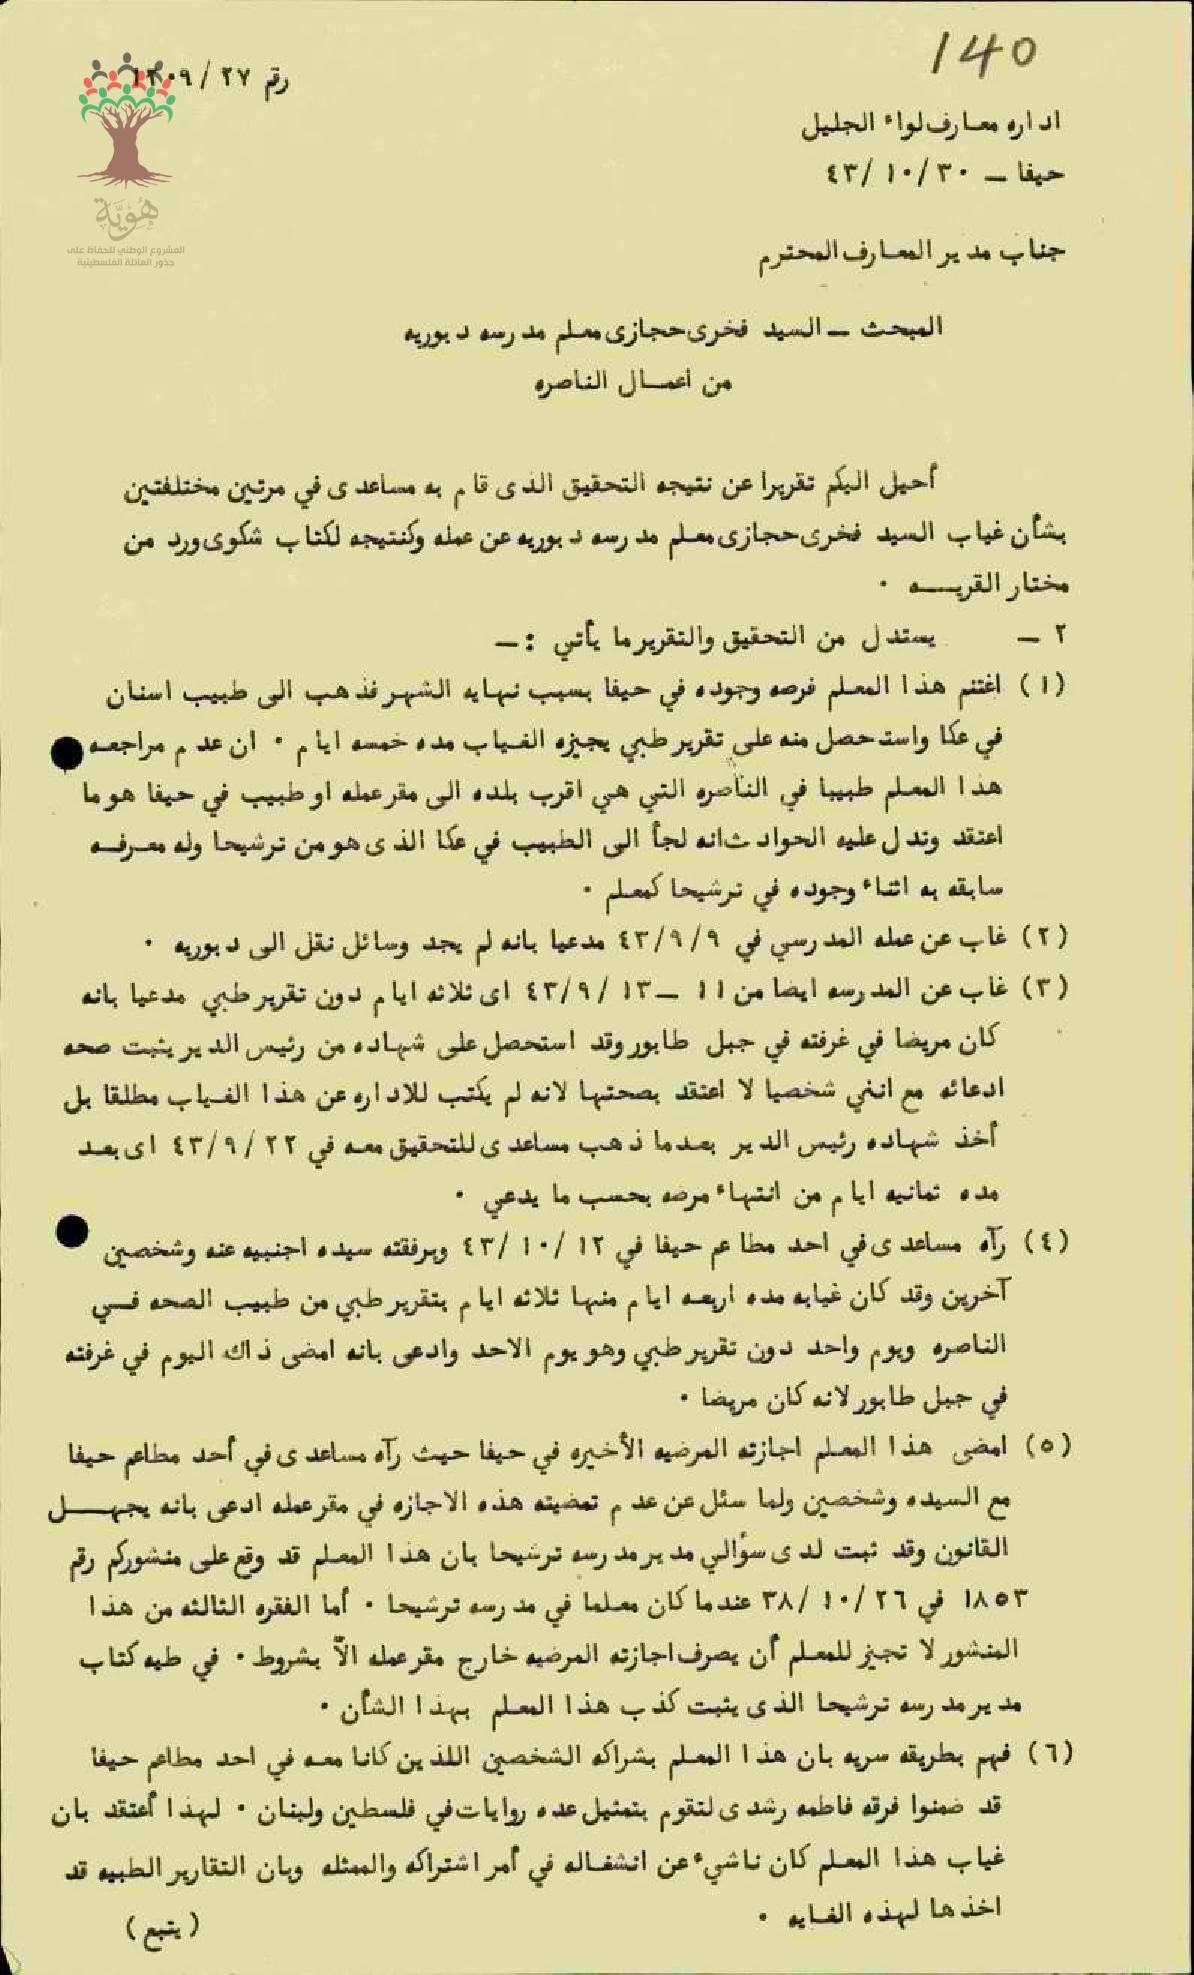 140
رقم ٢٧/ ١٢٠٩
هُوِيَّة
المشروع الوطني للحفاظ على
جذور العائلة الفلسطينية
اداره معارف لواء الجليل
حيفا ــ ٣٠/ ١٠/ ٤٣
جناب مدير المعارف المحترم
المبحث ــ السيد فخرى حجازى معلم مدرسه دبوريه
من أعمال الناصره
أحيل اليكم تقريرا عن نتيجه التحقيق الذى قام به مساعدى في مرتين مختلفتين
بشأن غياب السيد فخرى حجازى معلم مدرسه دبوريه عن عمله وكنتيجه لكتاب شكوى ورد من
مختار القريه ٠
٢ ــ يستدل من التحقيق والتقرير ما يأتي :ــ
(١) اغتنم هذا المعلم فرصه وجوده في حيفا بسبب نهايه الشهر فذهب الى طبيب اسنان
في عكا واستحصل منه على تقرير طبي يجيزه الغياب مده خمسه ايام ٠ ان عدم مراجعه
هذا المعلم طبيبا في الناصره التي هي اقرب بلده الى مقر عمله او طبيب في حيفا هو ما
اعتقد وتدل عليه الحوادث انه لجأ الى الطبيب في عكا الذى هو من ترشيحا وله معرفه
سابقه به اثناء وجوده في ترشيحا كمعلم ٠
(٢) غاب عن عمله المدرسي في ٩/ ٩/ ٤٣ مدعيا بانه لم يجد وسائل نقل الى دبوريه ٠
(٣) غاب عن المدرسه ايضا من ١١ ــ ١٣/ ٩/ ٤٣ اى ثلاثه ايام دون تقرير طبي مدعيا بانه
كان مريضا في غرفته في جبل طابور وقد استحصل على شهاده من رئيس الدير يثبت صحه
ادعائه مع انني شخصيا لا اعتقد بصحتها لانه لم يكتب للاداره عن هذا الغياب مطلقا بل
أخذ شهاده رئيس الدير بعدما ذهب مساعدى للتحقيق معه في ٢٢/ ٩/ ٤٣ اى بعد
مده ثمانيه ايام من انتهاء مرضه بحسب ما يدعي ٠
(٤) رآه مساعدى في احد مطاعم حيفا في ١٢/ ١٠/ ٤٣ وبرفقته سيده اجنبيه عنه وشخصين
آخرين وقد كان غيابه مده اربعه ايام منها ثلاثه ايام بتقرير طبي من طبيب الصحه في
الناصره ويوم واحد دون تقرير طبي وهو يوم الاحد وادعى بانه امضى ذاك اليوم في غرفته
في جبل طابور لانه كان مريضا ٠
(٥) امضى هذا المعلم اجازته المرضيه الأخيره في حيفا حيث رآه مساعدى في أحد مطاعم حيفا
مع السيده وشخصين ولما سئل عن عدم تمضيته هذه الاجازه في مقر عمله ادعى بانه يجهل
القانون وقد ثبت لدى سؤالي مدير مدرسه ترشيحا بان هذا المعلم قد وقع على منشوركم رقم
١٨٥٣ في ٢٦/ ١٠/ ٣٨ عندما كان معلما في مدرسه ترشيحا ٠ أما الفقره الثالثه من هذا
المنشور لا تجيز للمعلم أن يصرف اجازته المرضيه خارج مقر عمله الاّ بشروط ٠ في طيه كتاب
مدير مدرسه ترشيحا الذى يثبت كذب هذا المعلم بهذا الشأن ٠
(٦) فهم بطريقه سريه بان هذا المعلم بشراكه الشخصين اللذين كانا معه في احد مطاعم حيفا
قد ضمنوا فرقه فاطمه رشدى لتقوم بتمثيل عده روايات في فلسطين ولبنان ٠ لهذا أعتقد بان
غياب هذا المعلم كان ناشيء عن انشغاله في أمر اشتراكه والممثله وبان التقارير الطبيه قد
اخذها لهذه الغايه ٠
(يتبع)